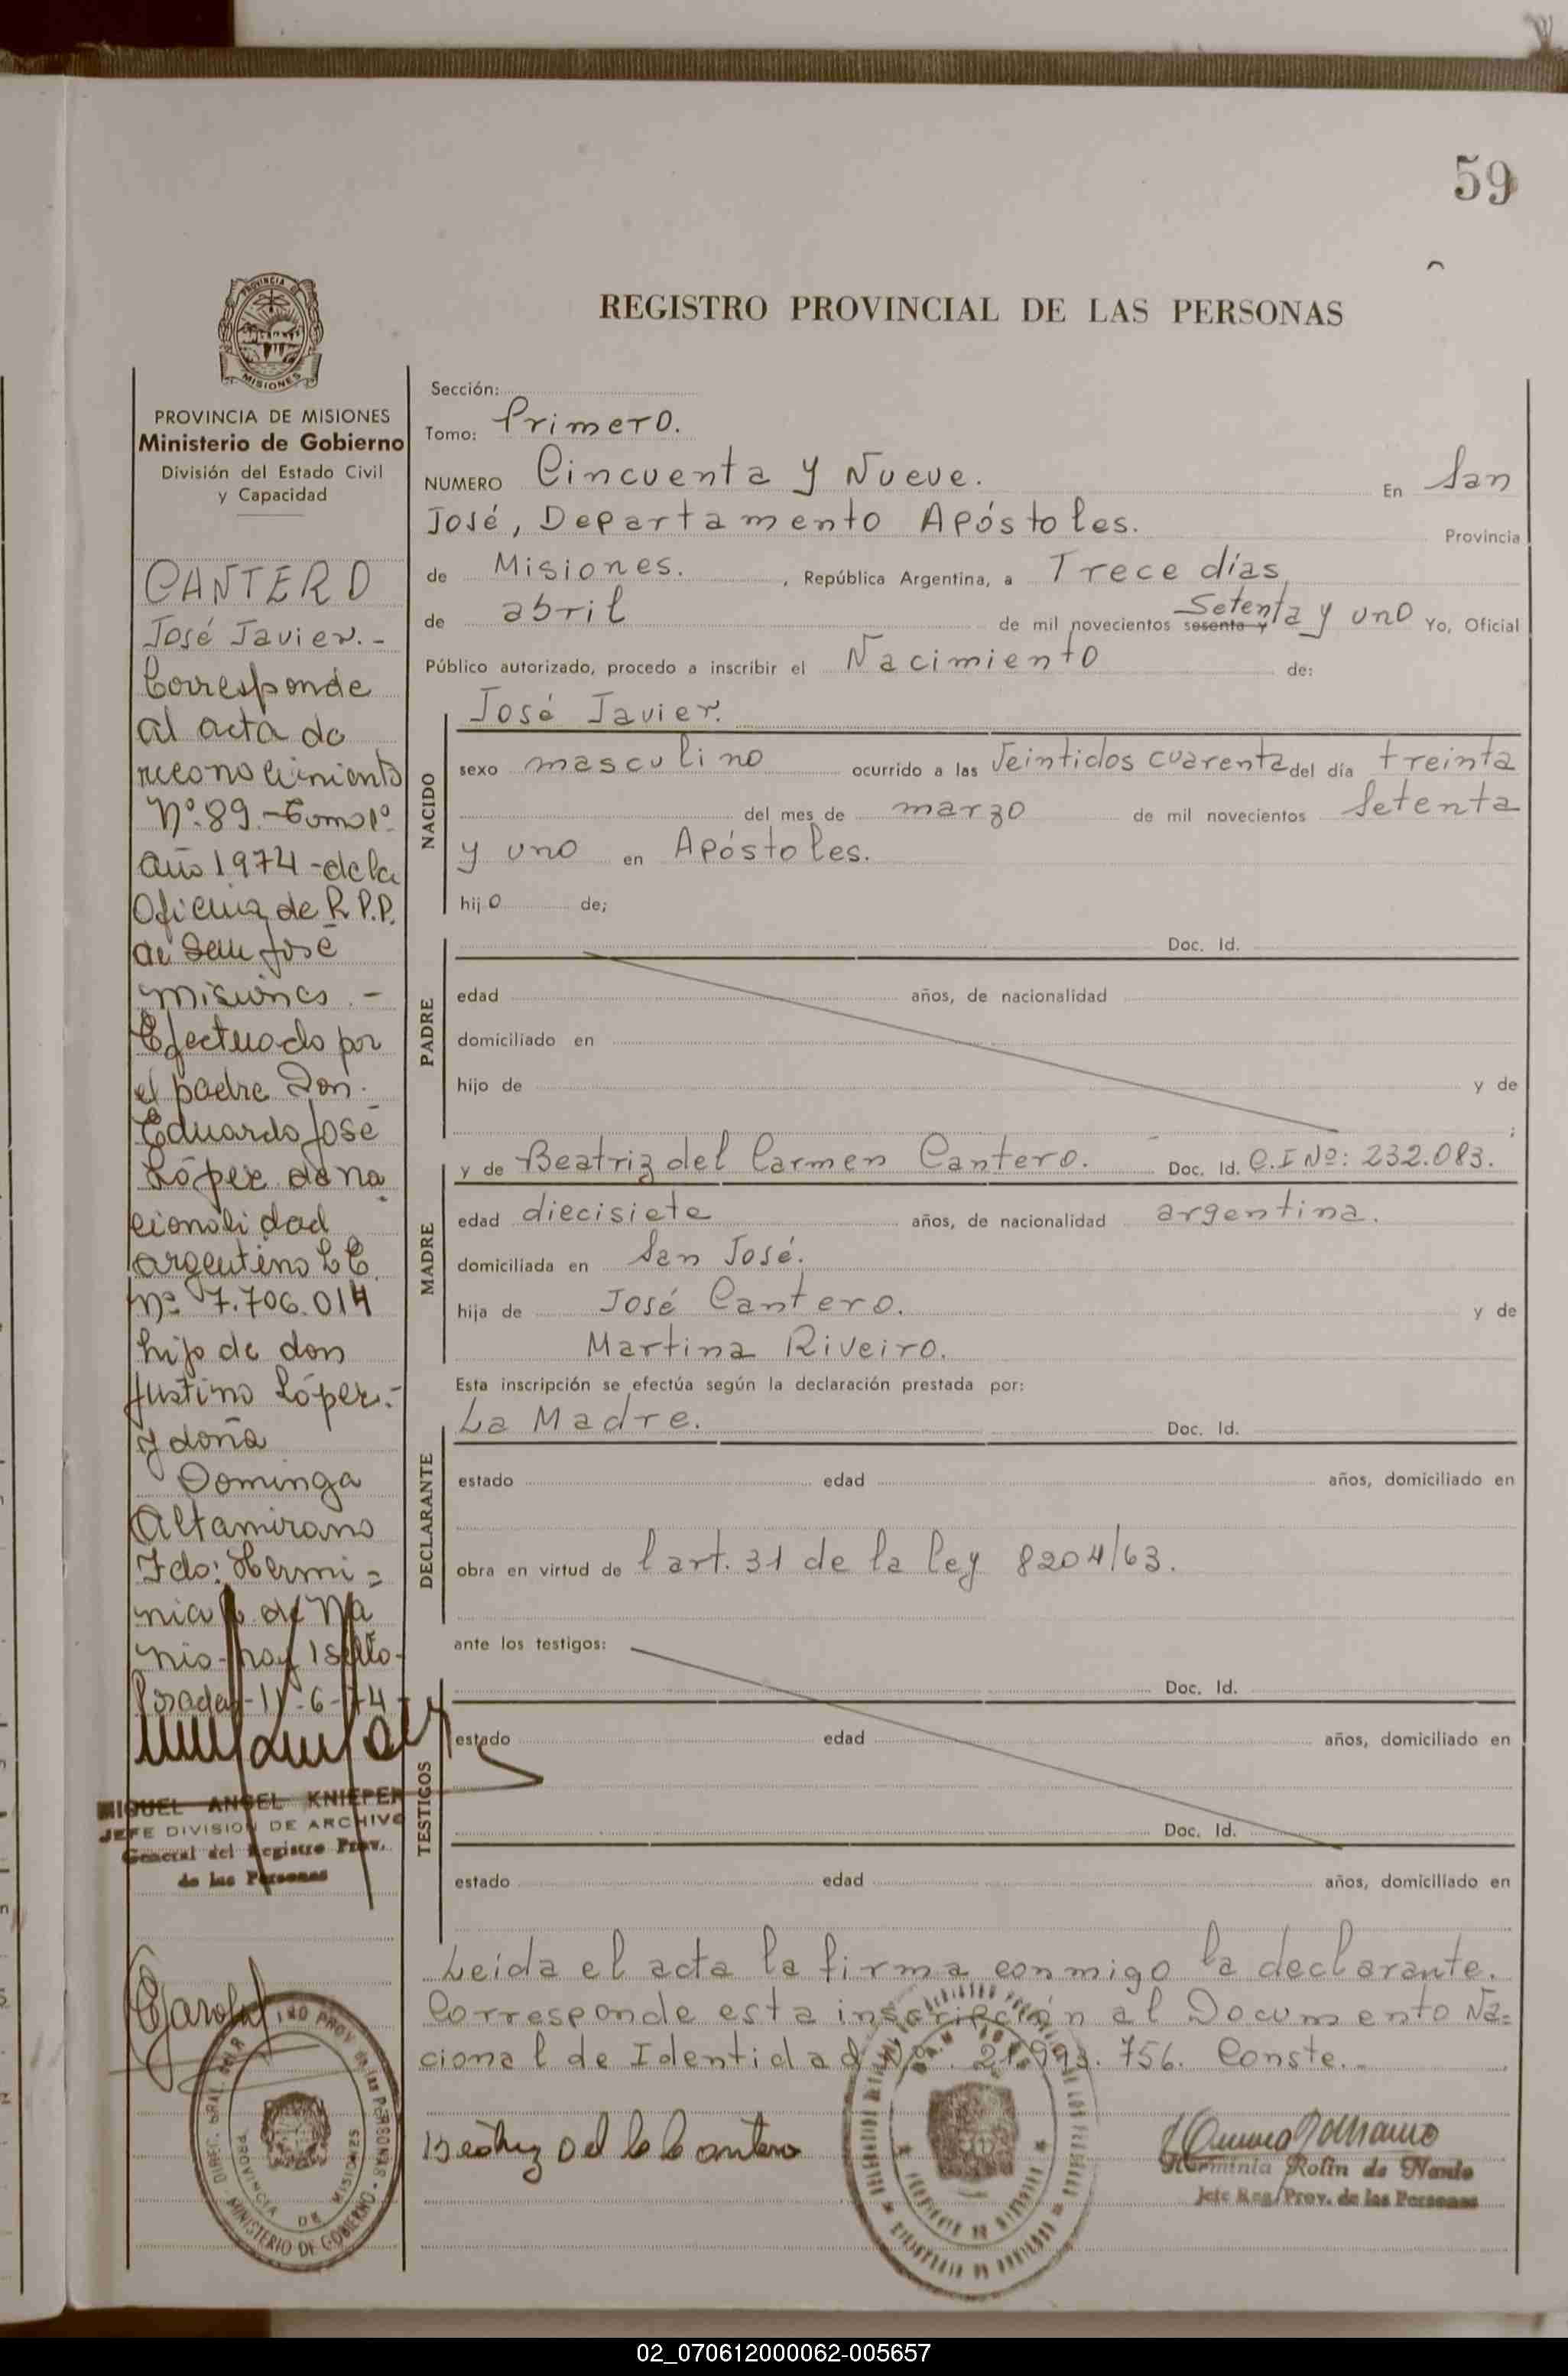 59
REGISTRO PROVINCIAL DE LAS PERSONAS
PROVINCIA DE
MISIONES
PROVINCIA DE MISIONES
Ministerio de Gobierno
División del Estado Civil
y Capacidad
CANTERO
José Javier.-
Corresponde
al acta de
reconocimiento
Nº 89.-Tomo 1º
año 1974-de la
Oficina de R.P.P.
de San José
Misiones.-
Efectuado por
el padre Don.
Eduardo José
López de na
cionalidad
argentino L E
Nº 7.706.014
hijo de don
Justino López.-
y doña
Dominga
Altamirano
Fdo: Hermi=
nia R. de Na
nio-hay 1 sello-
Posadas-11-6-74
MIGUEL ANGEL KNIEPER
JEFE DIVISION DE ARCHIVO
General del Registro Prov.
de las Personas
Sección:
Tomo: Primero.
NUMERO Cincuenta y Nueve. En San
José, Departamento Apóstoles. Provincia
de Misiones. , República Argentina, a Trece días
de abril de mil novecientos sesenta y Setenta y uno Yo, Oficial
Público autorizado, procedo a inscribir el Nacimiento de:
NACIDO
José Javier.
sexo masculino ocurrido a las Veintidos cuarenta del día treinta
del mes de marzo de mil novecientos Setenta
y uno en Apóstoles.
hijo de;
PADRE
Doc. Id.
edad años, de nacionalidad
domiciliado en
hijo de y de
;
MADRE
y de Beatriz del Carmen Cantero. Doc. Id. C.I Nº: 232.083.
edad diecisiete años, de nacionalidad argentina.
domiciliada en San José.
hija de José Cantero. y de
Martina Riveiro.
Esta inscripción se efectúa según la declaración prestada por:
DECLARANTE
La Madre. Doc. Id.
estado edad años, domiciliado en
obra en virtud de l art. 31 de la ley 8204/63.
ante los testigos:
TESTIGOS
Doc. Id.
estado edad años, domiciliado en
Doc. Id.
estado edad años, domiciliado en
Leida el acta la firma conmigo la declarante.
Corresponde esta inscripción al Documento Na=
cional de Identidad Nº. 21.993.756. Conste.-
Beatriz Del C Cantero
Herminia Rolin de Nanio
Jefe Reg. Prov. de las Personas
PROV. de las PERSONAS - MINISTERIO DE GOBIERNO
PROVINCIA DE MISIONES
02_070612000062-005657